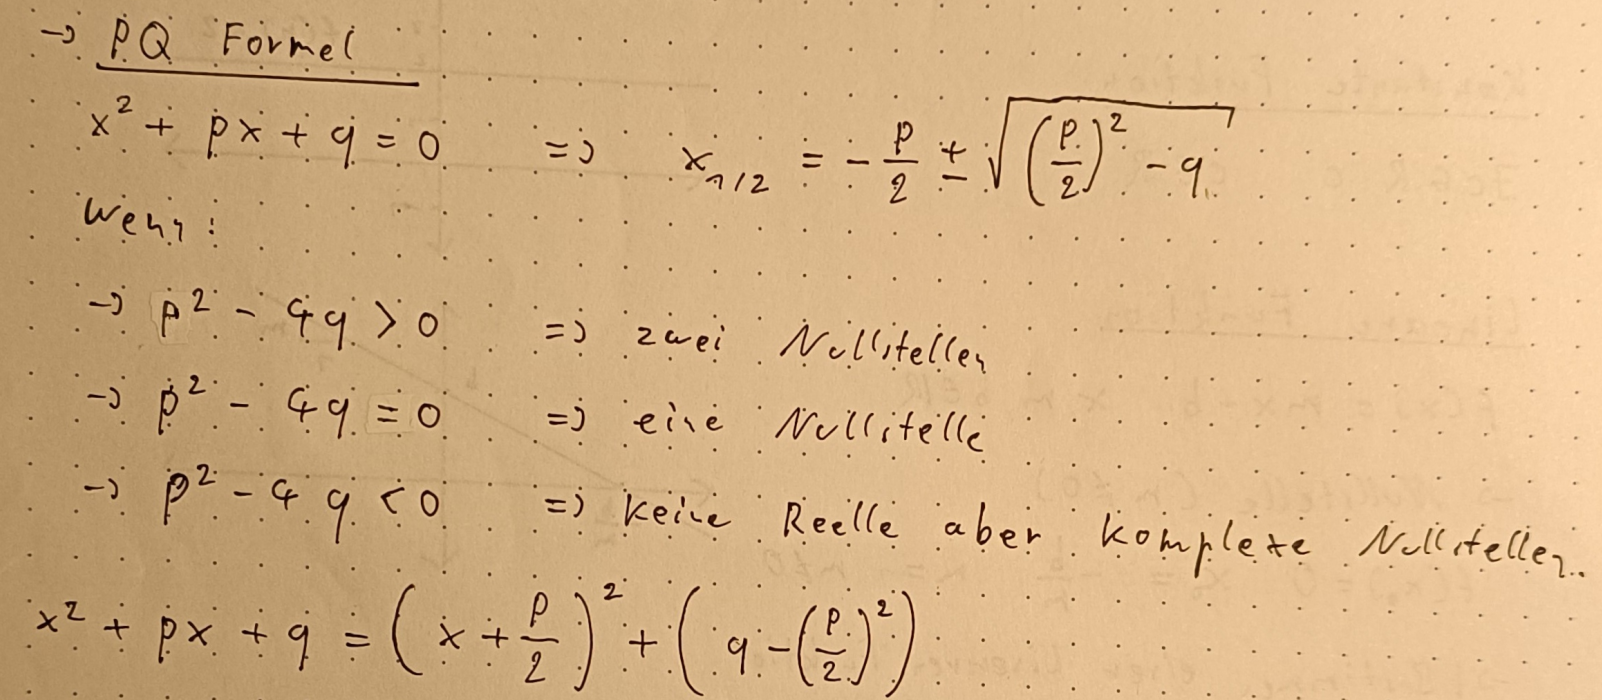 → PQ Formel
x² + px + q = 0 => x₁/₂ = - p/2 ± √((p/2)² - q)
Wenn:
→ p² - 4q > 0 => zwei Nullstellen
→ p² - 4q = 0 => eine Nullstelle
→ p² - 4q < 0 => keine Reelle aber komplexe Nullstellen.
x² + px + q = (x + p/2)² + (q - (p/2)²)